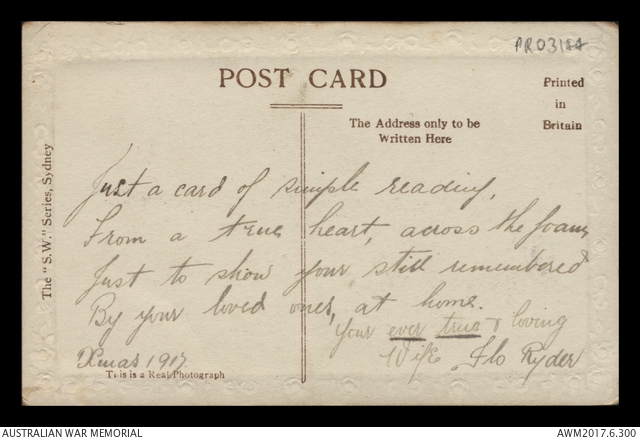 PR03184
POST CARD
Printed
in
Britain
The Address only to be
Written Here
The "S.W." Series, Sydney
Just a card of simple reading,
From a true heart, across the foam,
Just to show your still remembered
By your loved ones, at home.
Your ever true & loving
Wife Flo Ryder
Xmas 1917.
This is a Real Photograph
AUSTRALIAN WAR MEMORIAL
AWM2017.6.300